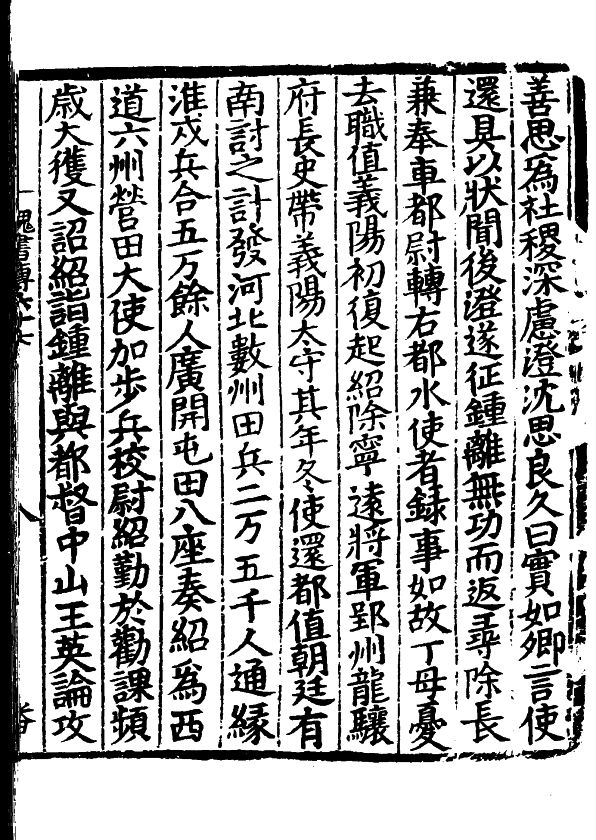 善思爲社稷深慮澄沈思良久曰實如卿言使
還具以狀聞後澄遂征鍾離無功而返尋除長
兼奉車都尉轉右都水使者録事如故丁母憂
去職值義陽初復起紹除寧遠將軍郢州龍驤
府長史帶義陽太守其年冬使還都值朝廷有
南討之計發河北數州田兵二万五千人通緣
淮戍兵合五万餘人廣開屯田八座奏紹爲西
道六州營田大使加步兵校尉紹勤於勸課頻
歲大獲又詔紹詣鍾離與都督中山王英論攻
魏書傳六十七
八